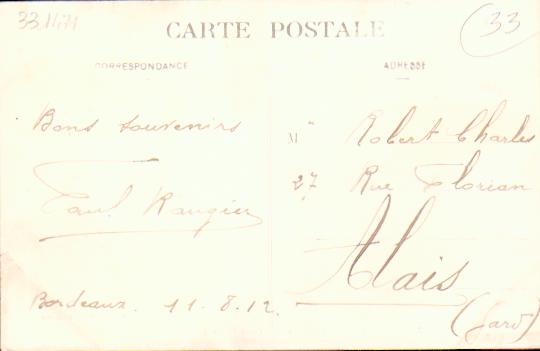 33
CARTE POSTALE
CORRESPONDANCE
ADRESSE
Bons souvenirs
Paul Raugier
Bordeaux. 11.8.12.
M" Robert Charles
27 Rue Florian
Alais
(Gard)